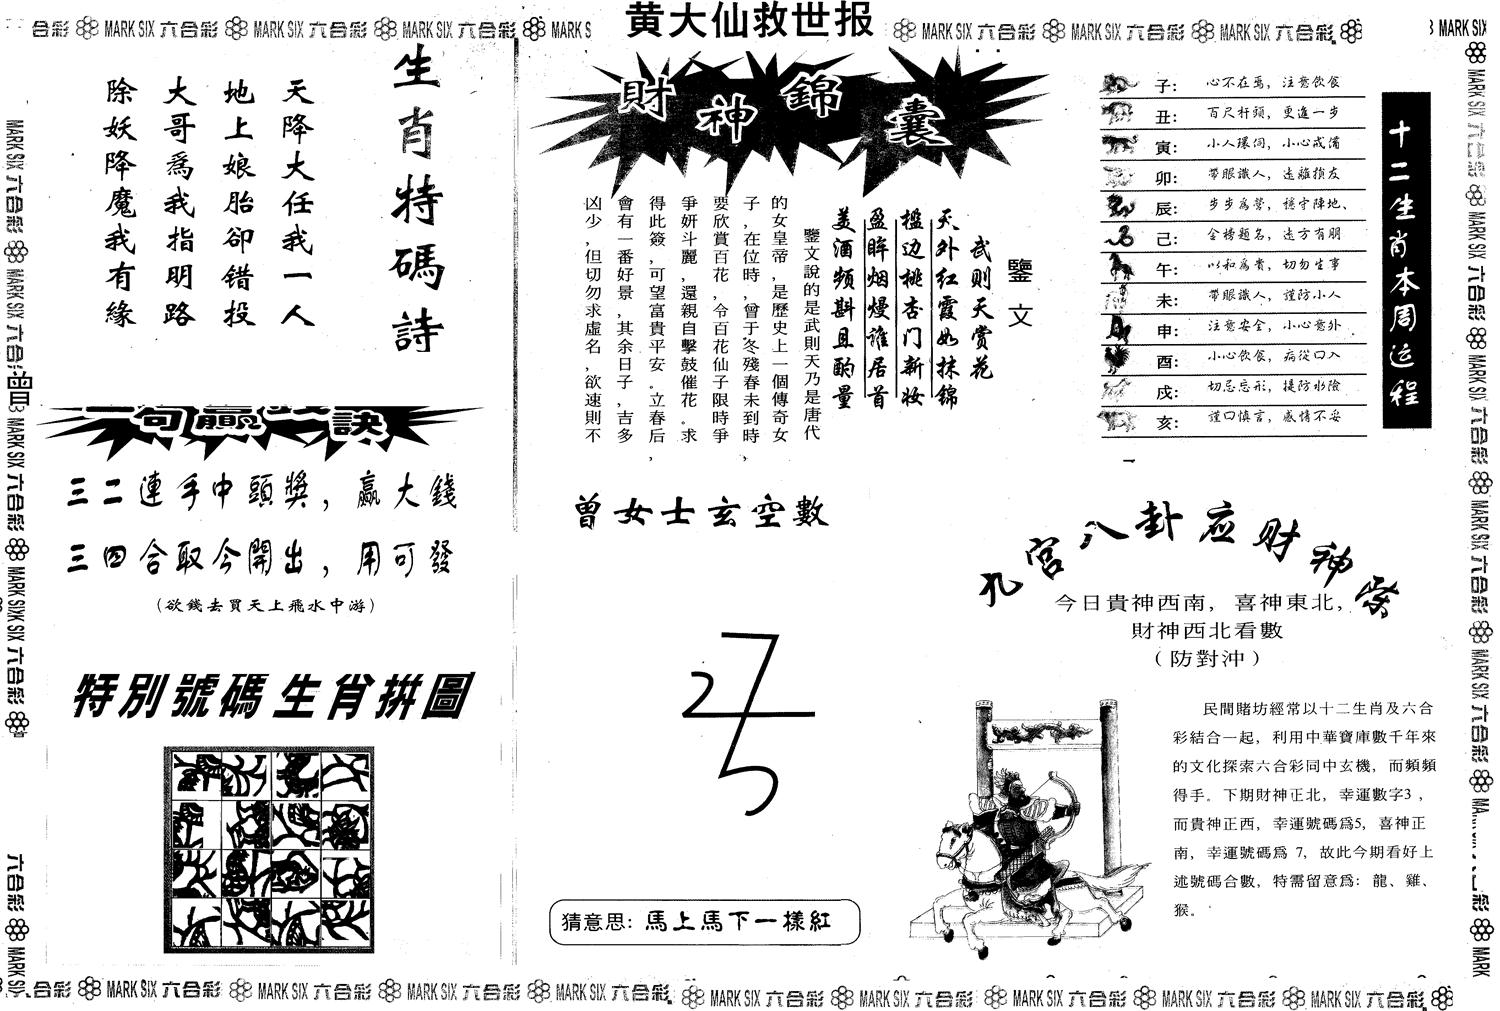 黄大仙救世报
合彩 MARK SIX 六合彩 MARK SIX 六合彩 MARK SIX 六合彩 MARK S
MARK SIX 六合彩 MARK SIX 六合彩 MARK SIX 六合彩
MARK SIX
生肖特碼詩
天降大任我一人
地上娘胎卻错投
大哥為我指明路
除妖降魔我有緣
一句贏錢訣
三二連手中頭獎，赢大錢
三四合取今開出，用可發
（欲錢去買天上飛水中游）
特別號碼生肖拼圖
財神錦囊
鑒文
武则天赏花
天外红霞如抹锦
榲边桃杏门新妆
盈眸烟熳谁居首
美酒频斟且酌量
鑒文說的是武則天乃是唐代
的女皇帝，是歷史上一個傳奇女
子，在位時，曾于冬殘春未到時，
要欣賞百花，令百花仙子限時爭
爭妍斗麗，還親自擊鼓催花。求
得此簽，可望富貴平安。立春后，
會有一番好景，其余日子，吉多
凶少，但切勿求虛名，欲速則不
曾女士玄空數
猜意思: 馬上馬下一樣紅
十二生肖本周运程
子: 心不在焉，注意飲食
丑: 百尺杆頭，更進一步
寅: 小人環伺，小心戒備
卯: 帶眼識人，遠離損友
辰: 步步為營，穩守陣地、
己: 金榜題名，遠方有朋
午: 以和為貴，切勿生事
未: 帶眼識人，謹防小人
申: 注意安全，小心意外
酉: 小心飲食，病從口入
戍: 切忌忘形，提防水險
亥: 謹口慎言，感情不妥
九宮八卦应财神柴
今日貴神西南，喜神東北，
財神西北看數
（防對沖）
民間賭坊經常以十二生肖及六合
彩結合一起，利用中華寶庫數千年來
的文化探索六合彩同中玄機，而頻頻
得手。下期財神正北，幸運數字3，
而貴神正西，幸運號碼爲5，喜神正
南，幸運號碼爲 7，故此今期看好上
述號碼合數，特需留意爲: 龍、雞、
猴。
六合彩 MARK SIX 六合彩 MARK SIX 六合彩 MARK SIX 六合彩 MARK SIX 六合彩 MARK SIX 六合彩 MARK SIX 六合彩 MARK SIX 六合彩 MARK SIX 六合彩